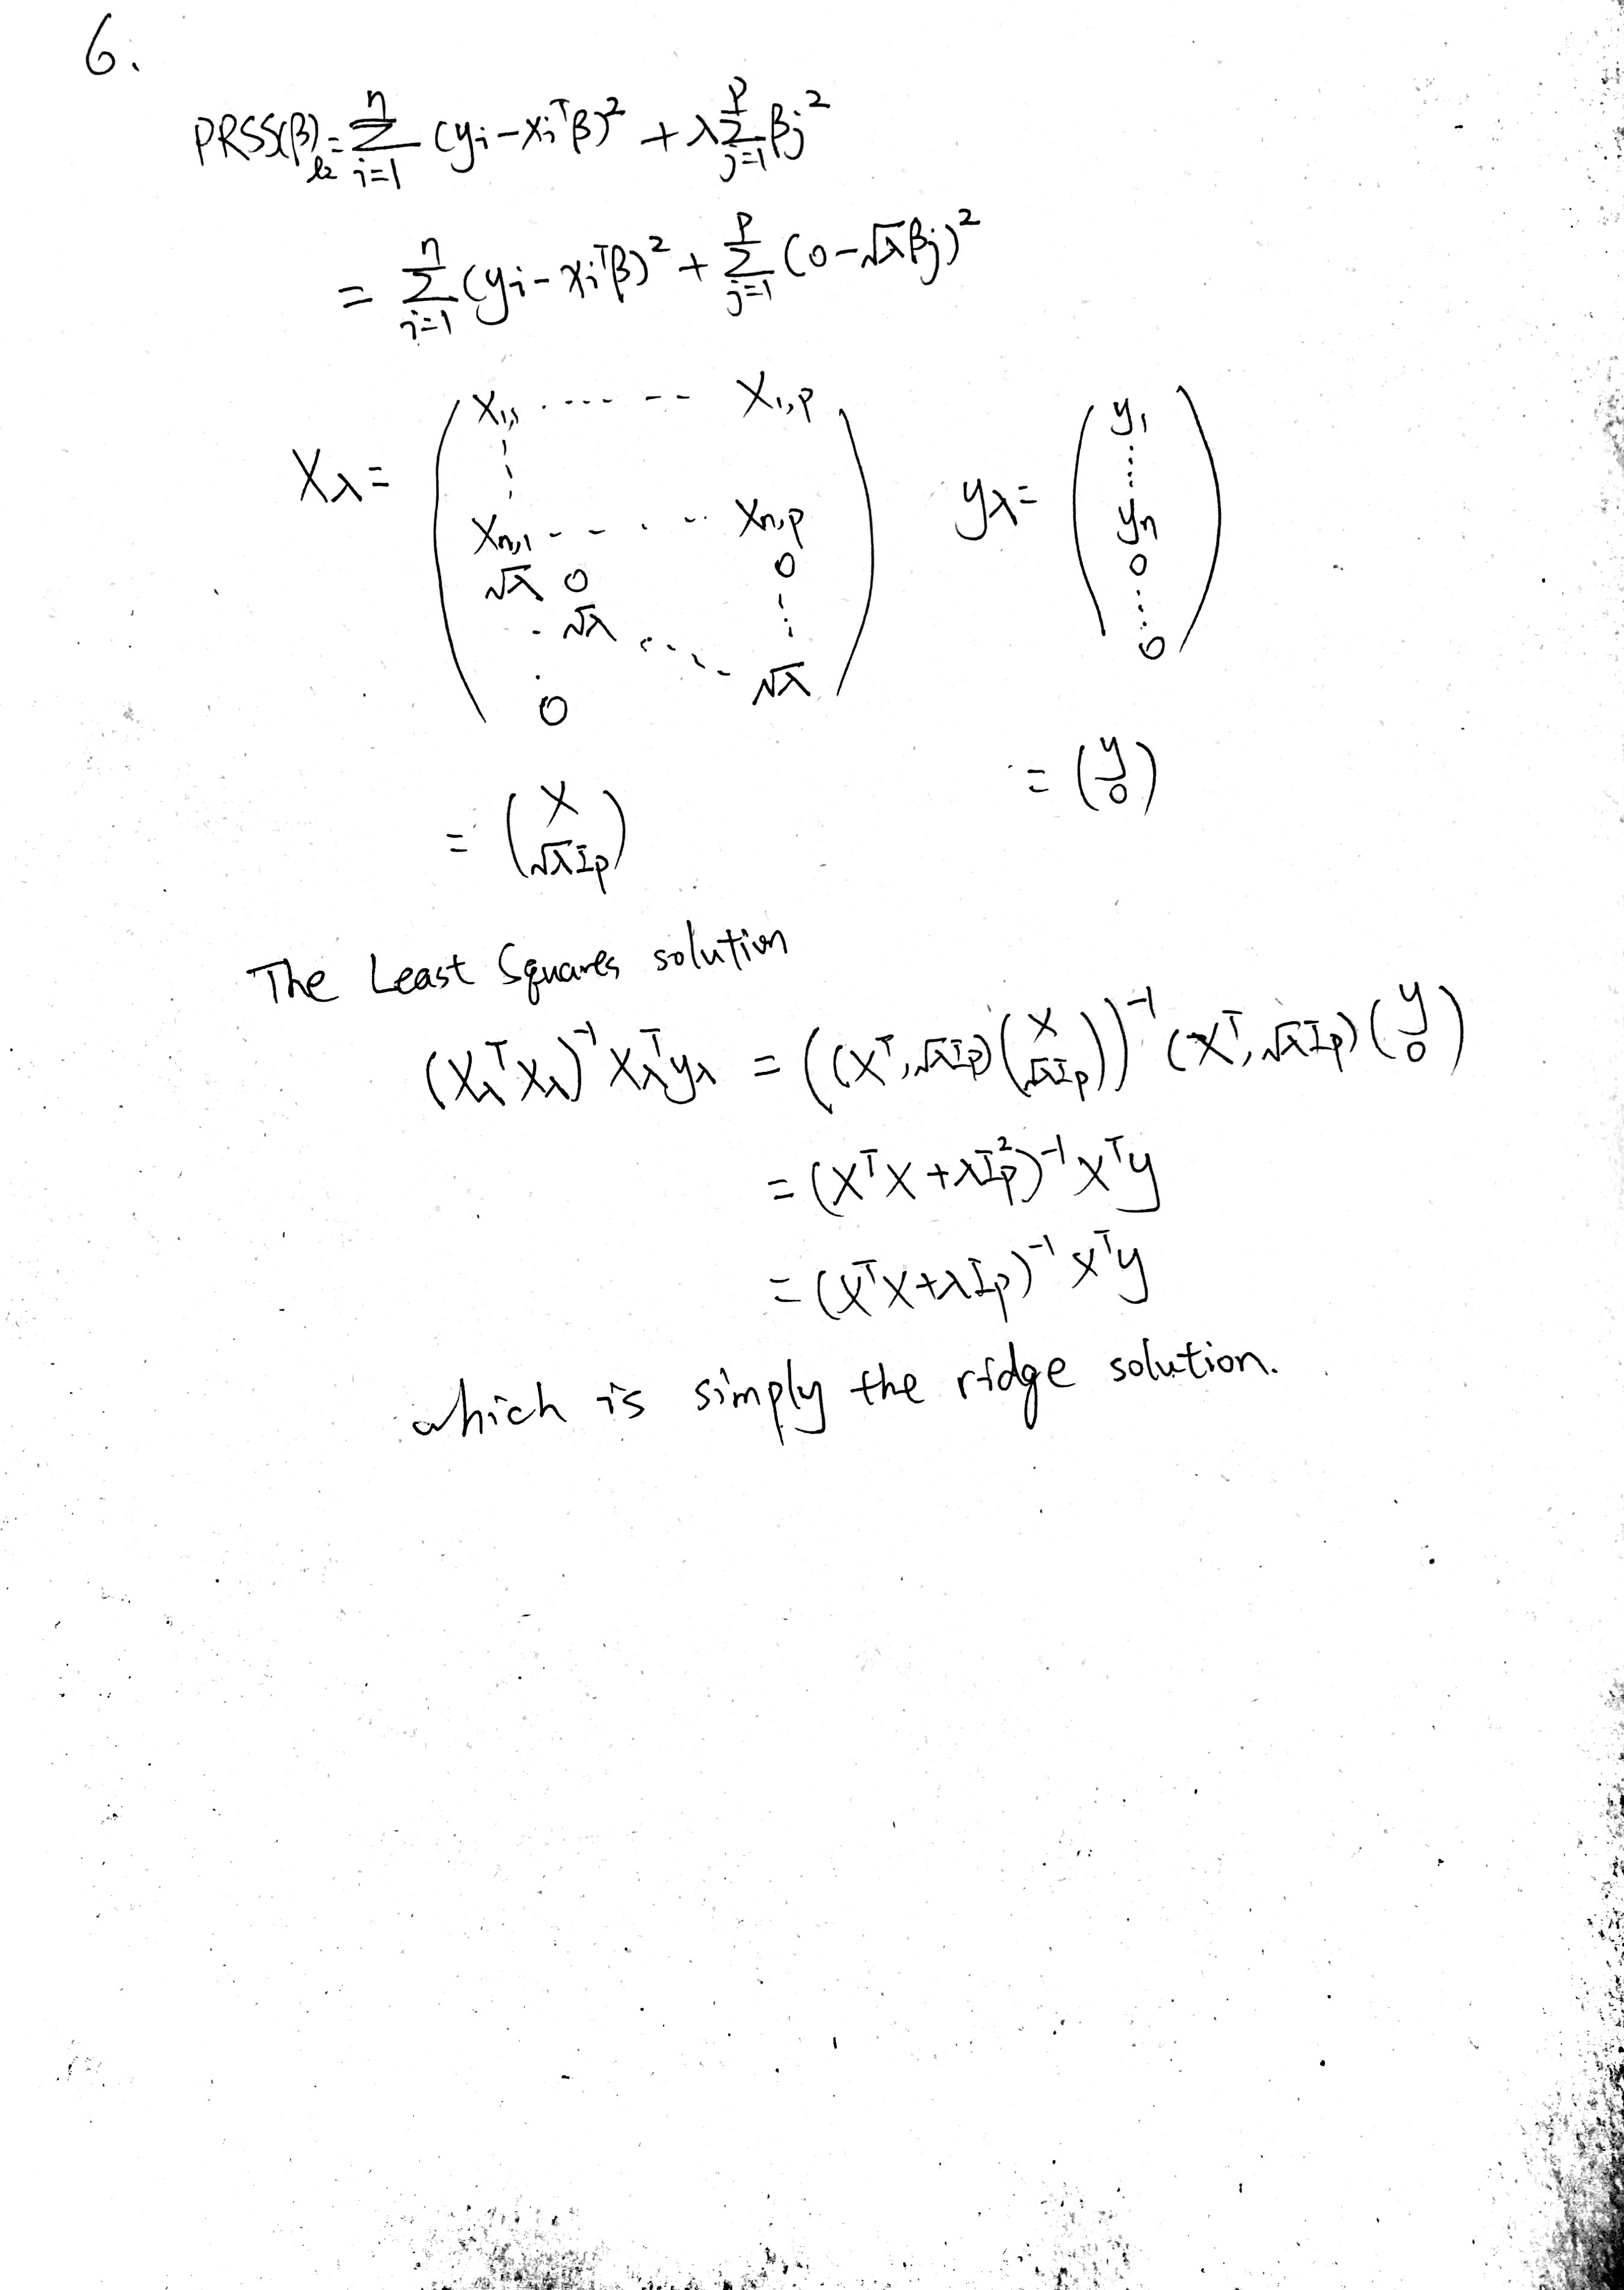 6.
PRSS(β)ℓ₂ = Σ_{i=1}^{n} (yᵢ - xᵢᵀβ)² + λ Σ_{j=1}^{p} βⱼ²
= Σ_{i=1}^{n} (yᵢ - xᵢᵀβ)² + Σ_{j=1}^{p} (0 - √λβⱼ)²
X_λ = ( x₁,₁ ....... x₁,p
⋮
xₙ,₁ ....... xₙ,p
√λ 0 0
. √λ ..... ⋮
. √λ
0 ) y_λ = ( y₁
⋮
yₙ
0
⋮
0 )
= ( X
√λIp ) = ( y
0 )
The Least Squares solution
(X_λᵀX_λ)⁻¹X_λᵀy_λ = ((Xᵀ, √λIp)( X
√λIp ))⁻¹ (Xᵀ, √λIp)( y
0 )
= (XᵀX + λIp²)⁻¹Xᵀy
= (XᵀX + λIp)⁻¹Xᵀy
which is simply the ridge solution.